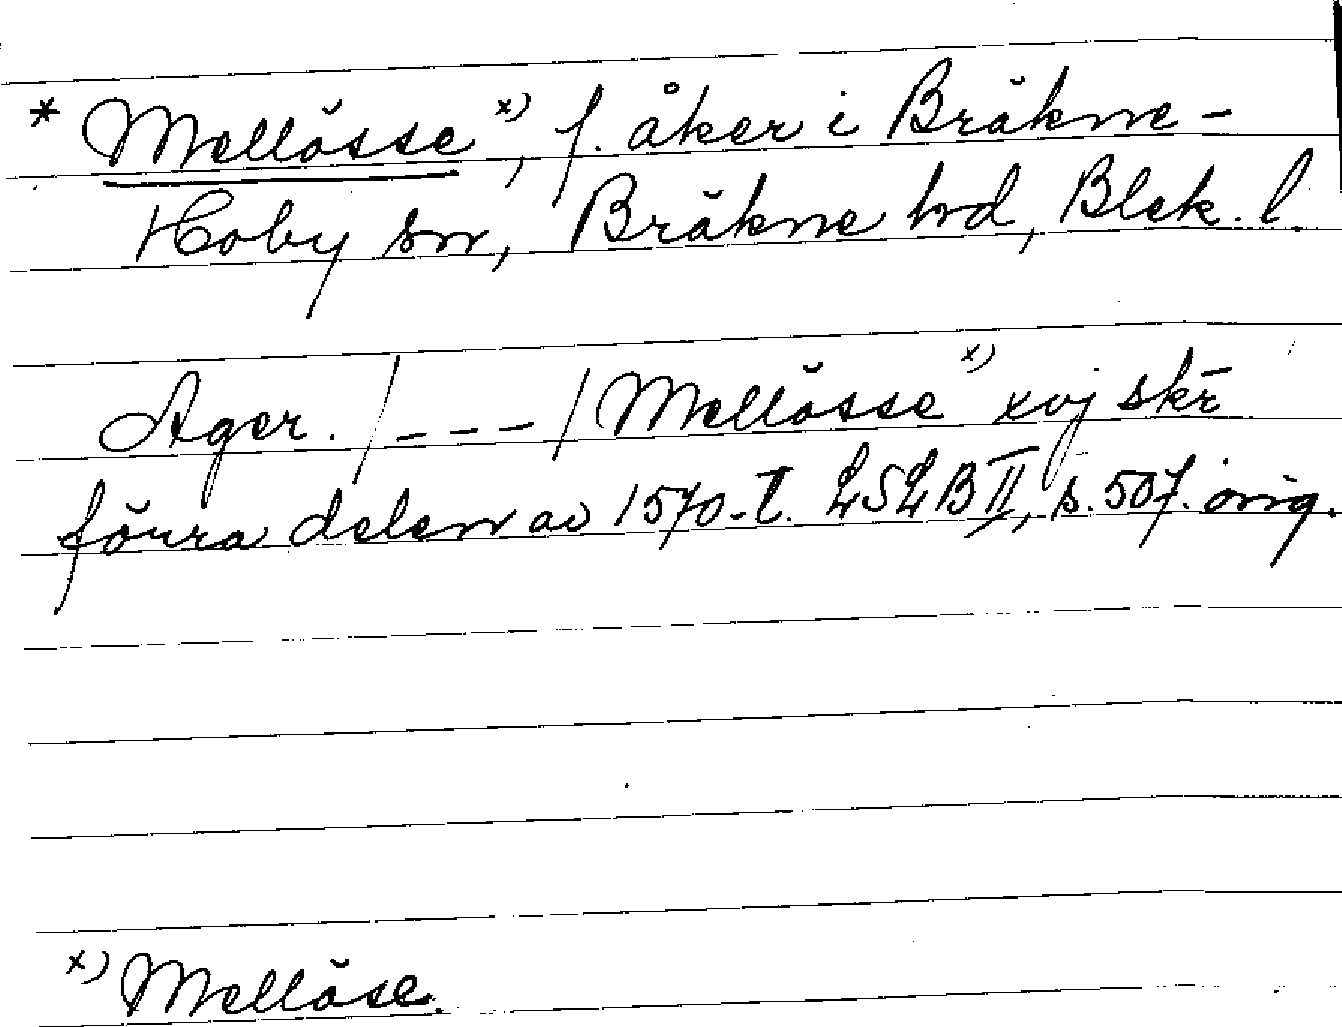 * Mellösse x), f. åker i Bräkne-
Hoby sn, Bräkne hd, Blek. l.
Ager. /---/ Mellösse x) xvj skr̄
förra delen av 1570-t. LSLB II, s. 507. orig.
x) Mellöse.